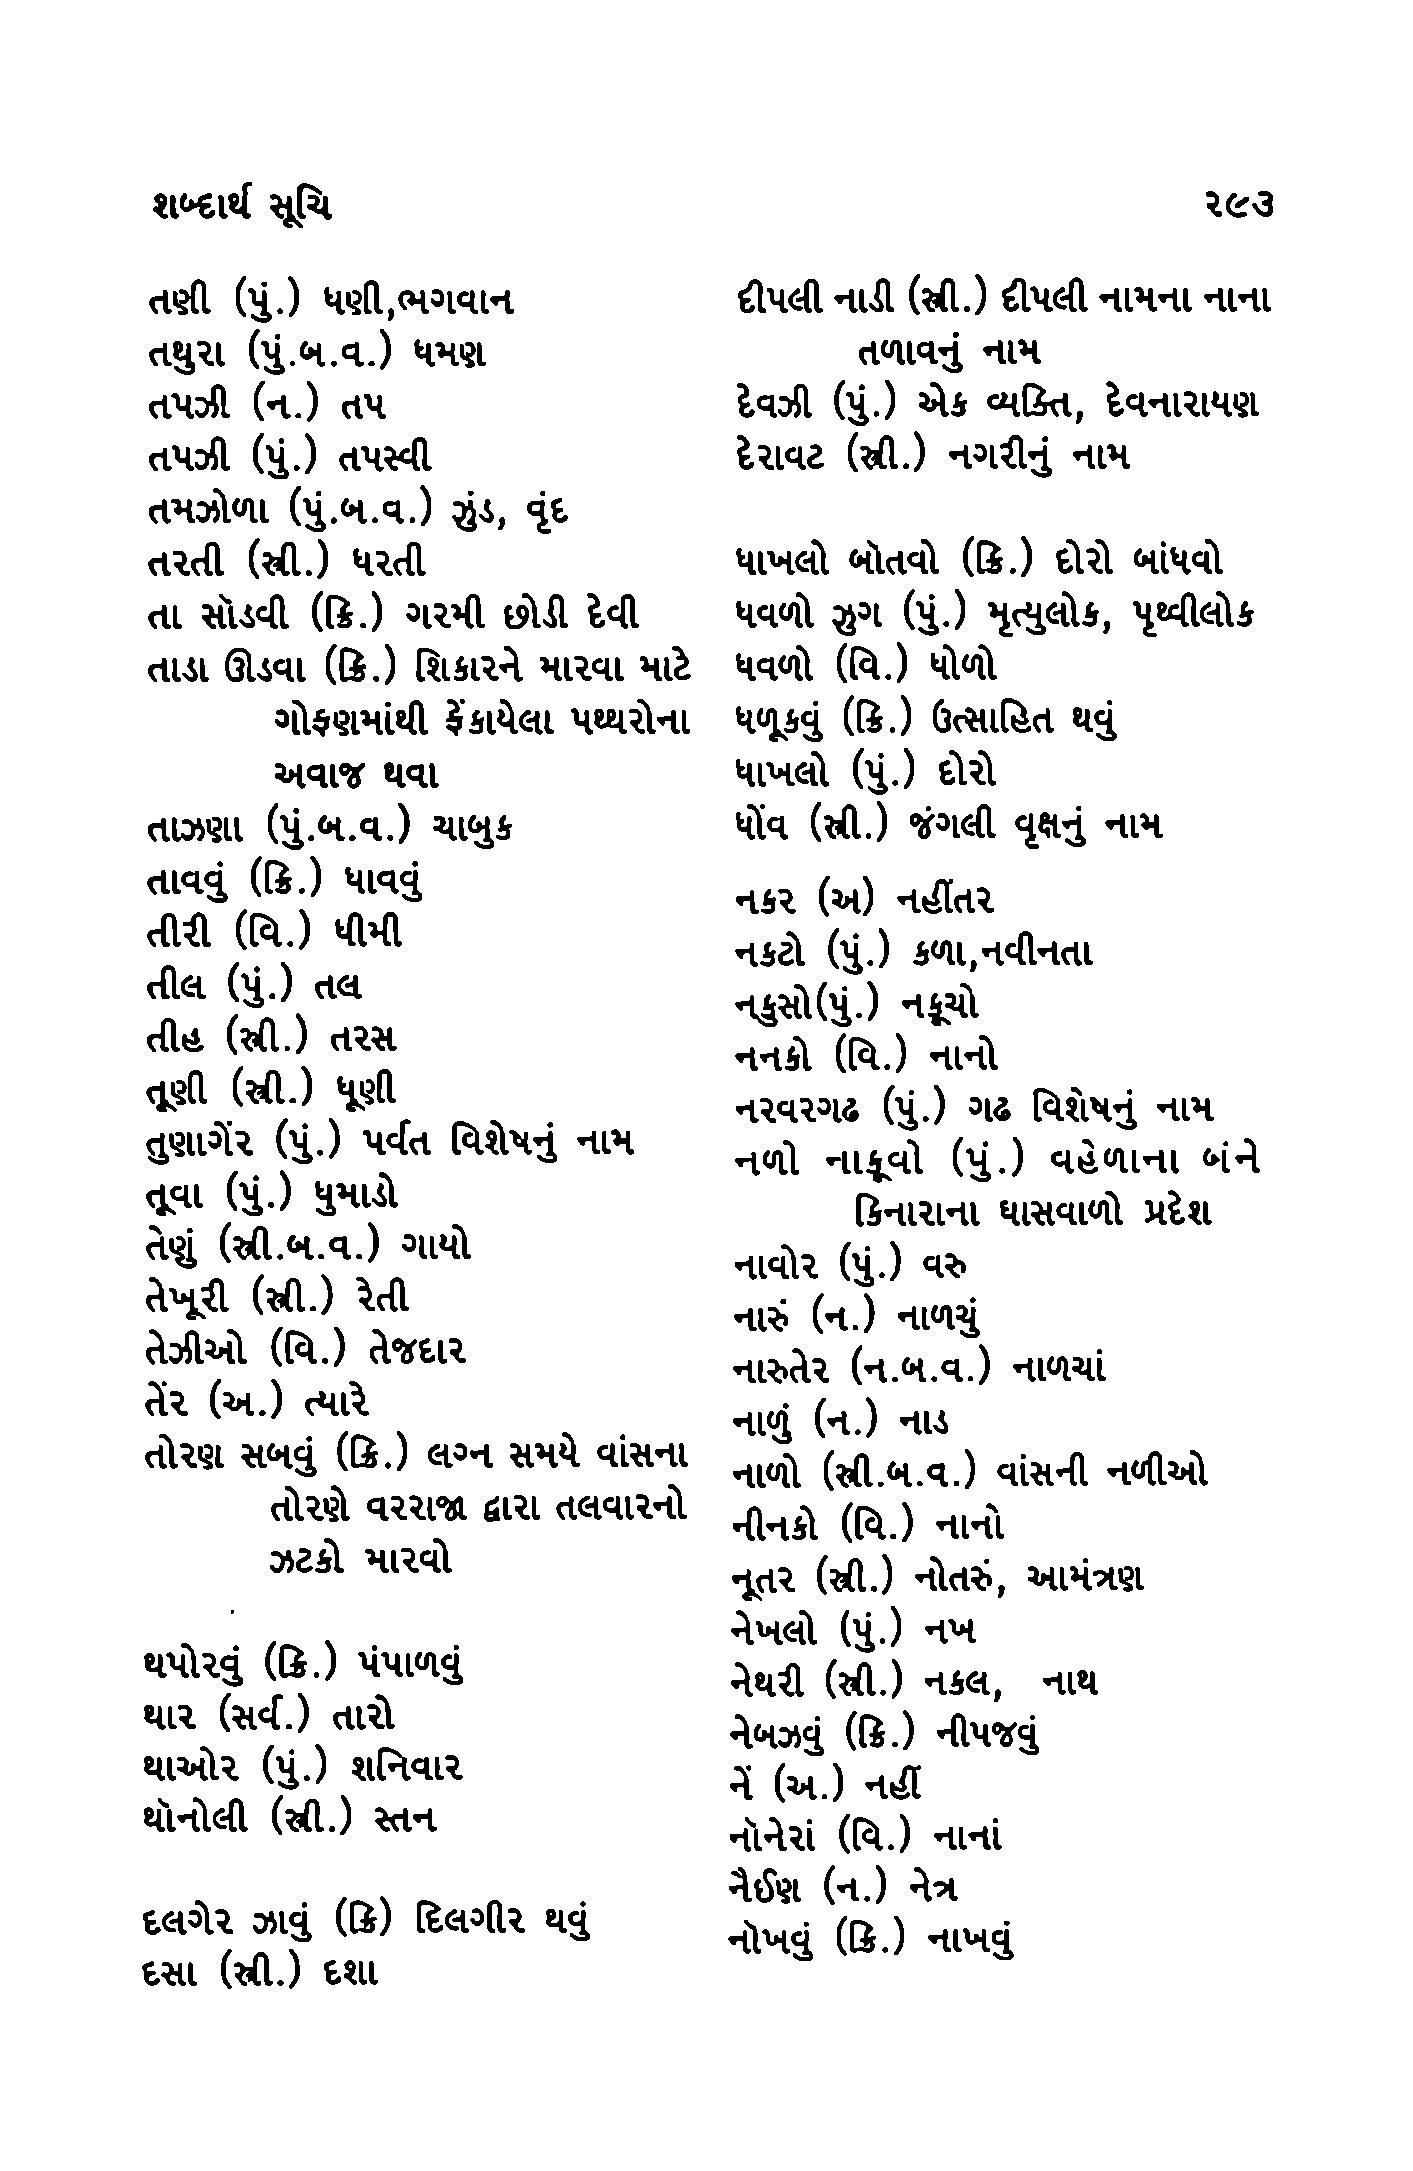 શબ્દાર્થ સૂચિ ૨૯૩
તણી (પું.) ધણી,ભગવાન
તથુરા (પું.બ.વ.) ધમણ
તપઝી (ન.) તપ
તપઝી (પું.) તપસ્વી
તમઝોળા (પું.બ.વ.) ઝુંડ, વૃંદ
તરતી (સ્ત્રી.) ધરતી
તા સૉડવી (ક્રિ.) ગરમી છોડી દેવી
તાડા ઊડવા (ક્રિ.) શિકારને મારવા માટે
ગોફણમાંથી ફેંકાયેલા પથ્થરોના
અવાજ થવા
તાઝણા (પું.બ.વ.) ચાબુક
તાવવું (ક્રિ.) ધાવવું
તીરી (વિ.) ધીમી
તીલ (પું.) તલ
તીહ (સ્ત્રી.) તરસ
તૂણી (સ્ત્રી.) ધૂણી
તુણાગેંર (પું.) પર્વત વિશેષનું નામ
તૂવા (પું.) ધુમાડો
તેણું (સ્ત્રી.બ.વ.) ગાયો
તેખૂરી (સ્ત્રી.) રેતી
તેઝીઓ (વિ.) તેજદાર
તેંર (અ.) ત્યારે
તોરણ સબવું (ક્રિ.) લગ્ન સમયે વાંસના
તોરણે વરરાજા દ્વારા તલવારનો
ઝટકો મારવો
થપોરવું (ક્રિ.) પંપાળવું
થાર (સર્વ.) તારો
થાઓર (પું.) શનિવાર
થૉનોલી (સ્ત્રી.) સ્તન
દલગેર ઝાવું (ક્રિ) દિલગીર થવું
દસા (સ્ત્રી.) દશા
દીપલી નાડી (સ્ત્રી.) દીપલી નામના નાના
તળાવનું નામ
દેવઝી (પું.) એક વ્યક્તિ, દેવનારાયણ
દેરાવટ (સ્ત્રી.) નગરીનું નામ
ધાખલો બૉતવો (ક્રિ.) દોરો બાંધવો
ધવળો ઝુગ (પું.) મૃત્યુલોક, પૃથ્વીલોક
ધવળો (વિ.) ધોળો
ધળૂકવું (ક્રિ.) ઉત્સાહિત થવું
ધાખલો (પું.) દોરો
ધોંવ (સ્ત્રી.) જંગલી વૃક્ષનું નામ
નકર (અ) નહીંતર
નકટો (પું.) કળા,નવીનતા
ન્કુસો(પું.) નકૂચો
નનકો (વિ.) નાનો
નરવરગઢ (પું.) ગઢ વિશેષનું નામ
નળો નાકૂવો (પું.) વહેળાના બંને
કિનારાના ઘાસવાળો પ્રદેશ
નાવોર (પું.) વરુ
નારું (ન.) નાળચું
નારુતેર (ન.બ.વ.) નાળચાં
નાળું (ન.) નાડ
નાળો (સ્ત્રી.બ.વ.) વાંસની નળીઓ
નીનકો (વિ.) નાનો
નૂતર (સ્ત્રી.) નોતરું, આમંત્રણ
નેખલો (પું.) નખ
નેથરી (સ્ત્રી.) નકલ, નાથ
નેબઝવું (ક્રિ.) નીપજવું
નેં (અ.) નહીં
નૉનેરાં (વિ.) નાનાં
નૈઈણ (ન.) નેત્ર
નૉખવું (ક્રિ.) નાખવું